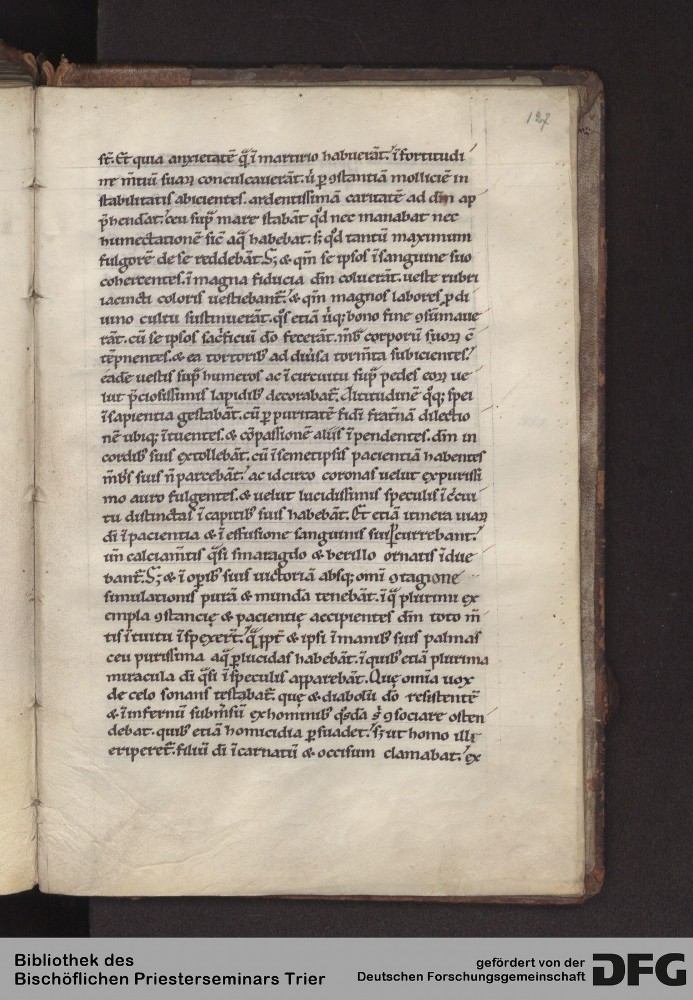 127
st̄. Et quia anxietatē q̄ ī martirio habuerāt. ī fortitudi
ne m̄tiū suaꝝ conculcauerāt. ꝑ ꝯstantiā molliciē in
stabilitatis abicientes. ardentissimā caritatē ad dm̄ ap
p̄hendāt. ceu sup̄ mare stabāt qd̄ nec manabat nec
humectationē sic̄ aq̄ habebat. sꝫ qd̄ tantū maximum
fulgorē de se reddebāt. Sꝫ & qm̄ se ipsos ī sanguine suo
coherentes. ī magna fiducia dm̄ coluerāt. ueste rubri
iacincti coloris uestiebant᷑. & qm̄ magnos labores ꝓ di
uino cultu sustinuerāt. qͦs etiā bono fine ꝯsūmaue
rāt. cū se ipsos sac̄ficiū dō fecerāt. mb̄ corporū suoꝝ cō
tēpnentes. & ea tortorib᷒ ad diuersa torm̄ta subicientes.
eadē uestis sup̄ humeros ac ī circuitu sup̄ pedes eoꝝ ue
lut p̄ciosissimis lapidib᷒ decorabat᷑. Altitudinē qͦqꝫ spei
ī sapientia gestabāt. cū ꝑ puritatē fidei frat̄nā dilectio
nē ubiqꝫ ītuentes. & cōpassionē aliis īpendentes. dm̄ in
cordib᷒ suis extollebāt. cū ī semetipsis pacientiā habentes
mb̄s suis n̄ parcebāt. ac idcirco coronas uelut ex purissi
mo auro fulgentes. & uelut lucidissimis speculis ī circui
tu distinctas ī capitib᷒ suis habebāt. Et etiā itinera uiaꝝ
di ī pacientia & ī effusione sanguinis sui currebant.
un̄ calciam̄tis q̄si smaragdo & berillo ornatis īdue
bant᷑. Sꝫ & ī oꝑib᷒ suis uictoriā absqꝫ omī ꝯtagione
simulationis purā & mundā tenebāt. ī q̄ plurimi ex
empla ꝯstancię & pacientię accipientes dm̄ toto m̄
tis ītuitu īspexer̄t. q̄ ꝓpt̄ & ipsi ī manib᷒ suis palmas
ceu purissima aq̄ ꝑlucidas habebāt. ī quib᷒ etiā plurima
miracula di q̄si ī speculis apparebāt. Quę omīa uox
de celo sonans testabat᷑. quę & diabolū dō resistentē
& ī infernū subm̄sū ex hominib᷒ qͦsdā s̄ ꝯsociare osten
debat. quib᷒ etiā homicidia ꝑsuadet. sꝫ ut homo illi
eriperet᷑. filiū di īcarnatū & occisum clamabat. ex
Bibliothek des
Bischöflichen Priesterseminars Trier
gefördert von der
Deutschen Forschungsgemeinschaft
DFG